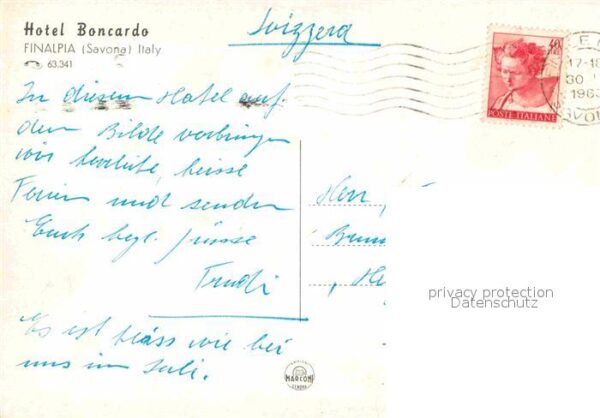 Hotel Boncardo
FINALPIA (Savona) Italy
63.341
Svizzera
40
17-18
30
1963
POSTE ITALIANE
In diesem Hotel auf
dem Bilde verbringen
wir herrliche, heisse
Ferien und senden
Euch herzl. Grüsse
Trudi
Es ist heiss wie bei
uns im Juli.
Herr,
privacy protection
Datenschutz
MARCONI
GENOVA